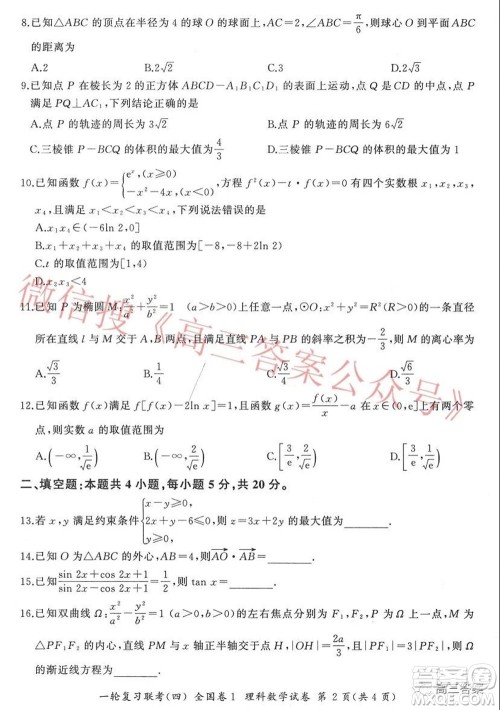 8.已知△ABC 的顶点在半径为 4 的球 O 的球面上,AC=2,∠ABC=π/6,则球心 O 到平面 ABC
的距离为
A.2 B.2√2 C.2√3 D.4
9.已知点 P 在棱长为 2 的正方体 ABCD-A₁B₁C₁D₁ 的表面上运动,点
满足 PQ⊥AC₁,下列结论正确的是
A.点 P 的轨迹的周长为 3√2 B.点 P 的轨迹的周长为 6√2
C.三棱锥 P-BCQ 的体积的最大值为 4/3 D.三棱锥 P-BCQ 的体积的最大值为 1
10.已知函数 f(x)={eˣ,(x≥0) -x²-4x,(x<0),方程 f²(x)-t·f(x)=0 有四个实数根 x₁,x₂,x₃,
x₄,且满足 x₁<x₂<x₃<x₄,下列说法错误的是
A.x₁x₄∈(-6ln 2,0]
B. 的取值范围为[-8,-4+2ln 2)
C.t 的取值范围为[1,4)
D.x₂x₃<4
11.已知 P 为椭圆 M:x²/a²+y²/b²=1 (a>b>0)上任意一点,
所在的直线 l 与 交于 A,B 两点,且满足直线 PA 与 PB 的斜率之积为-2/3,则 M 的离心率为
A.√3/3 C.√3/2 D.√6/3
12.已知 满足 f[f(x)-ln x]=1,且函数 g(x)=f(x)/x-a(x>0)上有两个零
点,则实数 a 的取值范围为
A.(-∞,1/√e) C.[3/e,1/√e] D.[3/e,1/√e)
二、填空题:本题共 4 小题,每小题 5 分,共 20 分。
13.若 x,y 满足约束条件{x-y≥0, 2x+y-6≤0, y≥0,则 z=3x+2y 的最大值为
14.已知 O 为△ABC 的外心,AB=4,则AO·AB=
15.已知(sin 2x+cos 2x+1)/(sin 2x-cos 2x+1)=1/2,则 tan x=
16.已知双曲线 Ω:x²/a²-y²/b²=1 的左右焦点分别为 F₁,F₂,P 为 Ω 上一点,M 为△PF₁F₂ 的内
心,直线 PM 与 x 轴正半轴交于点 H,|OH|=2a/3,且|PF₁|=3|PF₂|,则 Ω
的渐近线方程为
一轮复习联考(四) 全国卷1 理科数学试卷 第 2 页(共 4 页)
微信搜《高三答案公众号》
高三答案